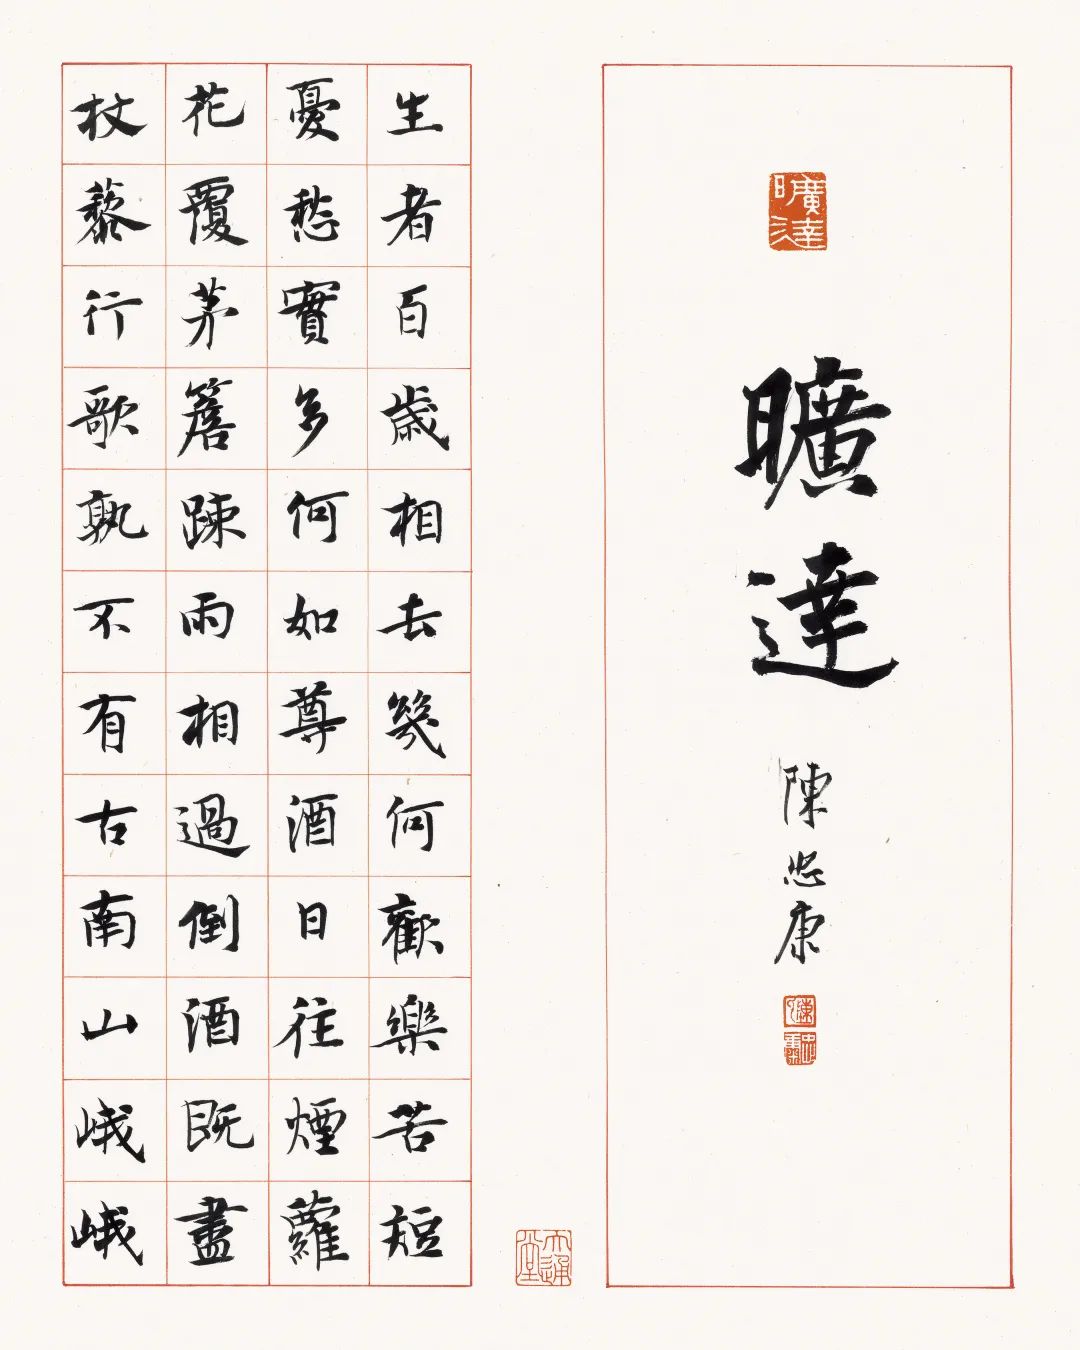 曠達
曠達
陳忠康
生者百歲相去幾何歡樂苦短
憂愁實多何如尊酒日往煙蘿
花覆茅簷踈雨相過倒酒既盡
杖藜行歌孰不有古南山峨峨